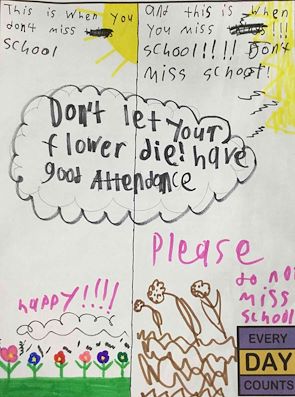 This is when you
don't miss
School
And this is when
you miss !!!
school!!!! Don't
miss school!
Don't let your
flower die! have
good Attendance
happy!!!!
Please
do not
miss
school
EVERY
DAY
COUNTS